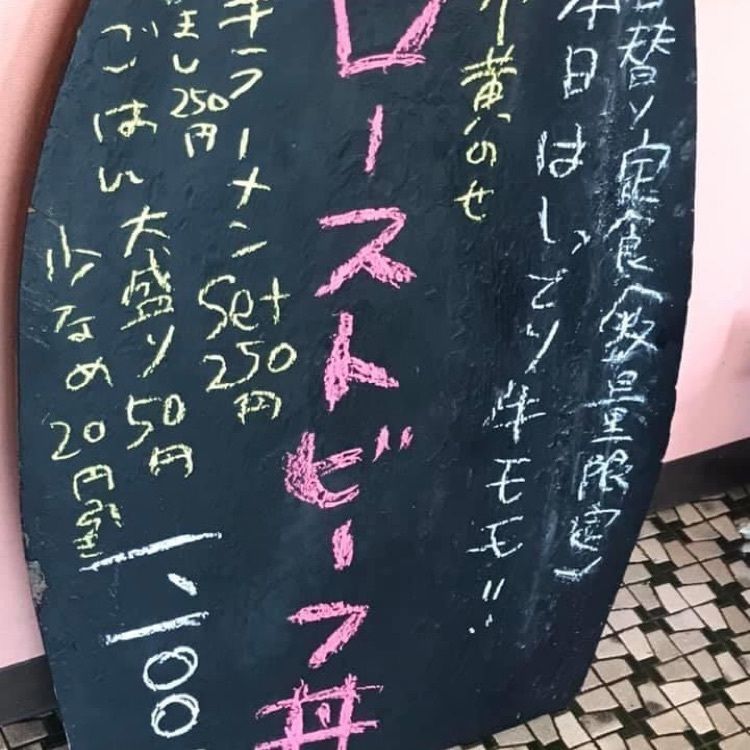 替り定食(数量限定)
本日はしっとり牛モモ!!
黄のせ
ローストビーフ丼
キラーメンset250円
250円
ごはん大盛り50円
少なめ20円引き
1,100